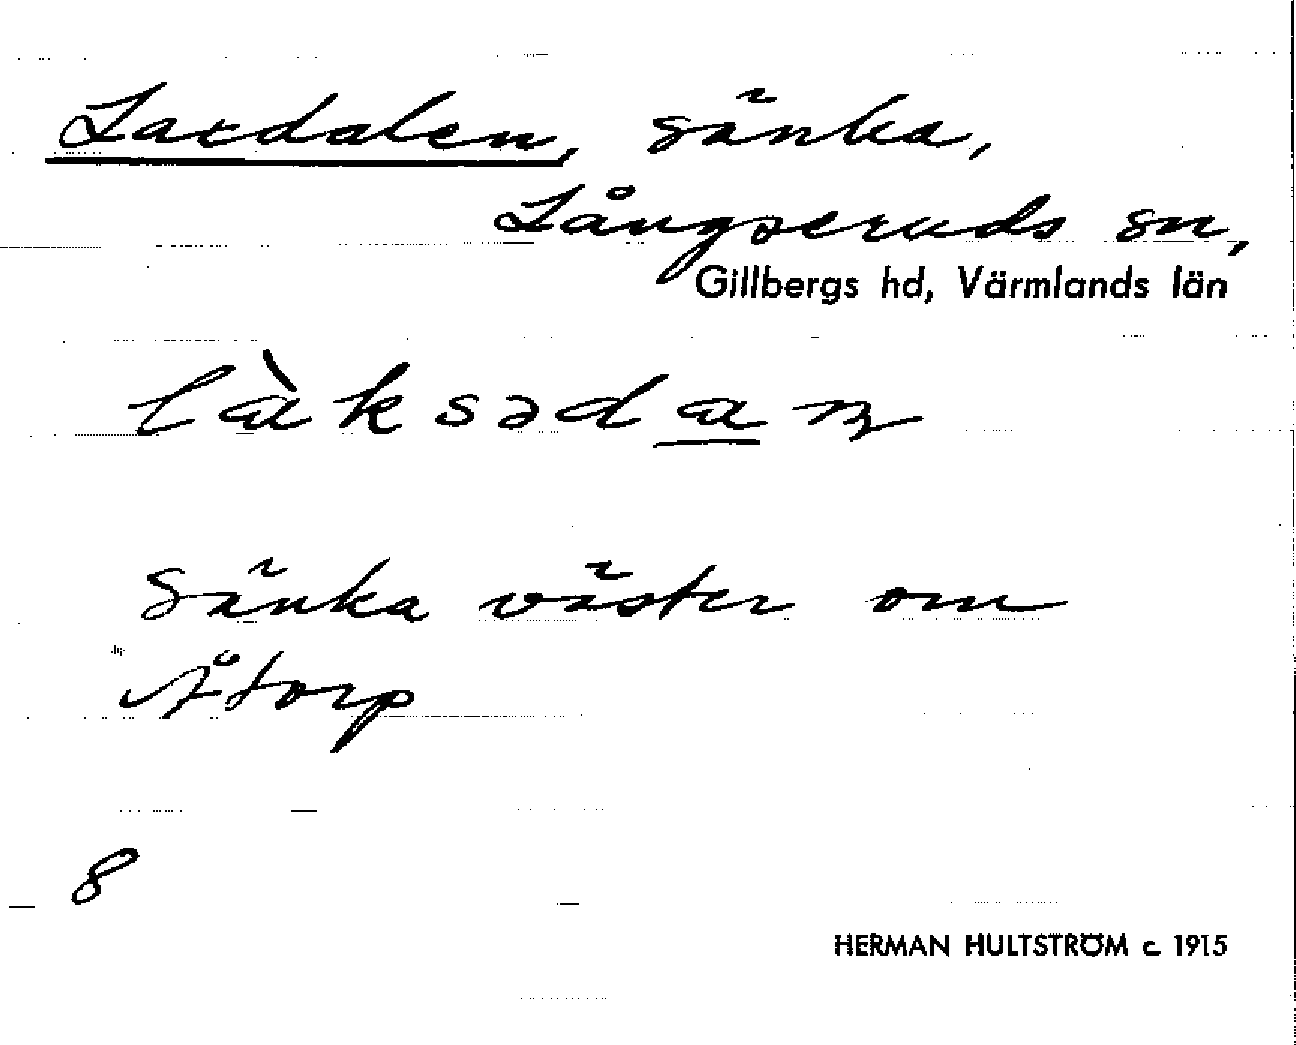 Laxdalen, sänka,
Långseruds sn,
Gillbergs hd, Värmlands län
làksədan
Sänka väster om
Åtorp
8
HERMAN HULTSTRÖM c. 1915